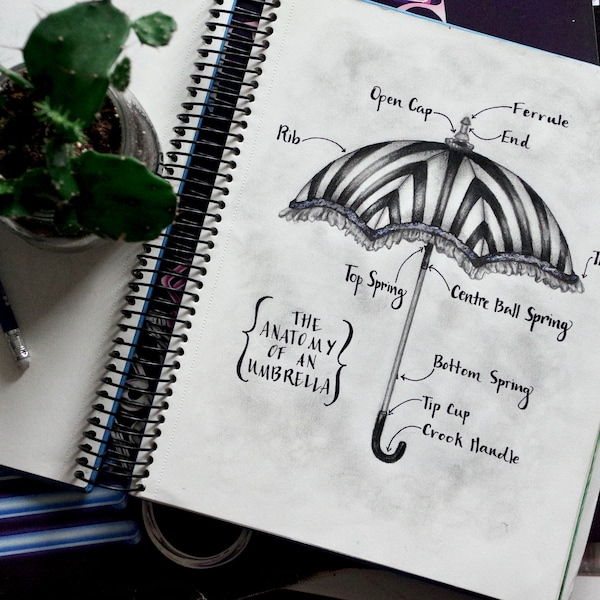 Open Cap
Ferrule
End
Rib
Top Spring
Centre Ball Spring
THE
ANATOMY
OF AN
UMBRELLA
Bottom Spring
Tip Cup
Crook Handle